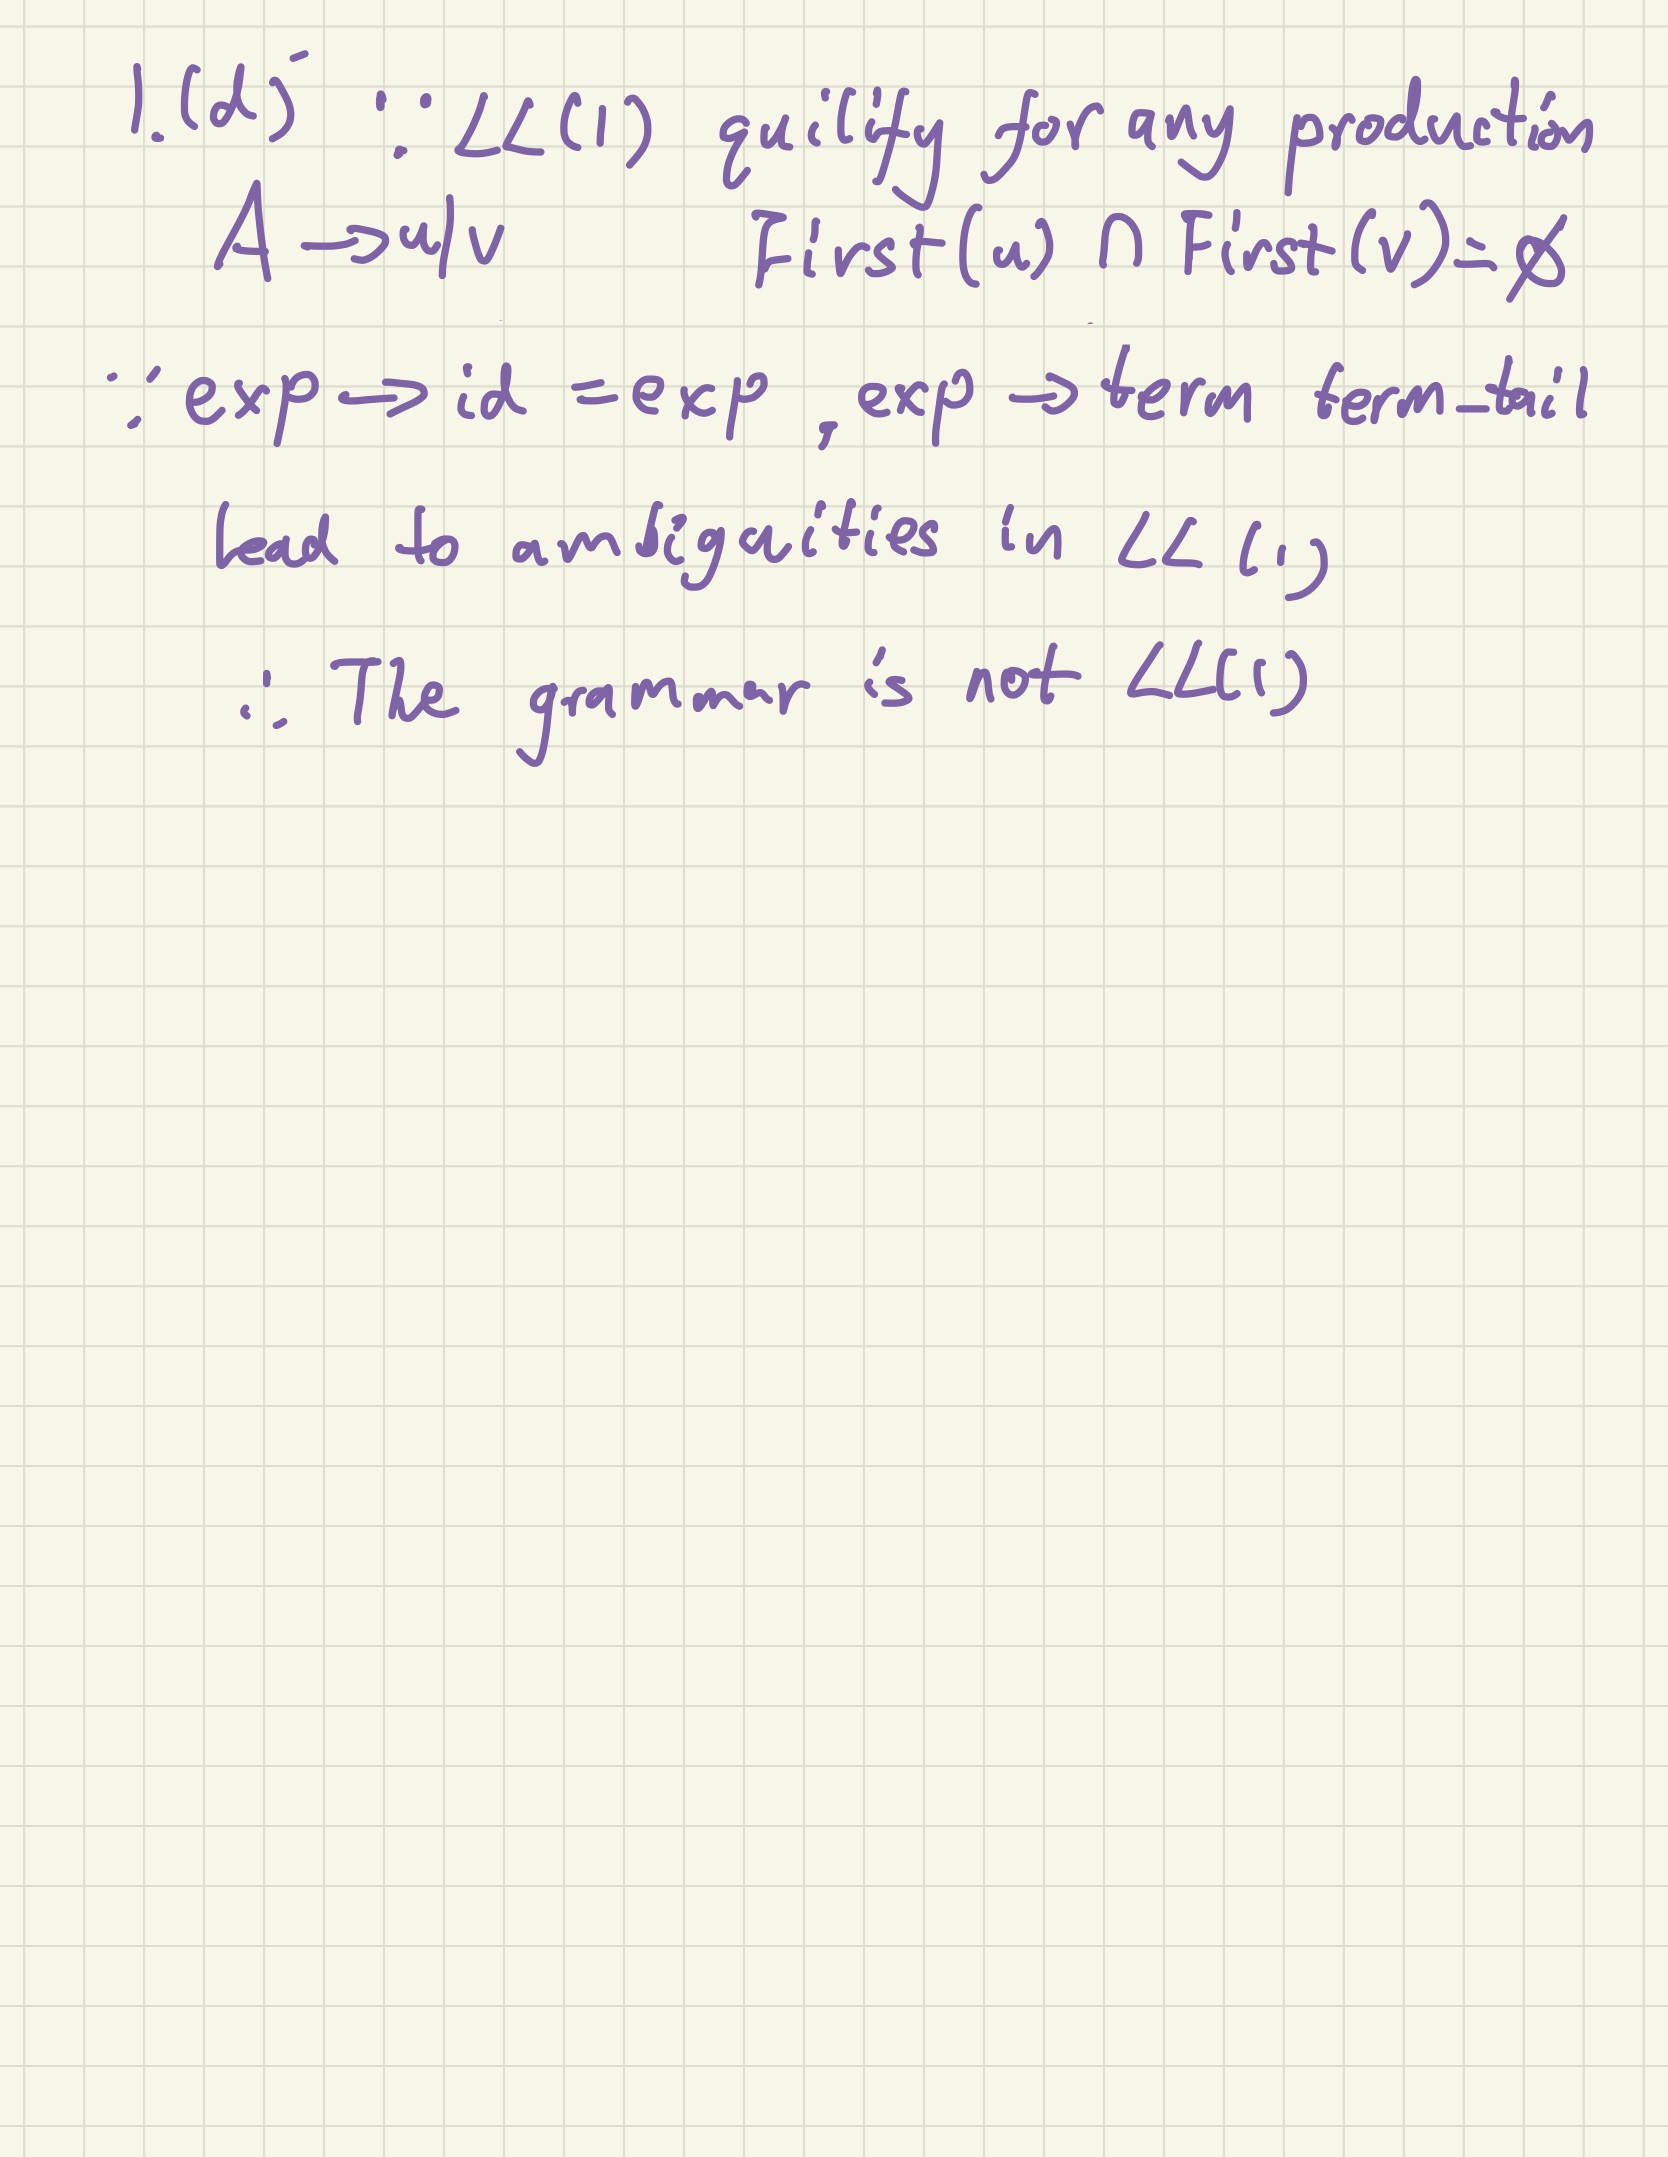 1.(d) ∵ LL(1) quilify for any production
A → u/v First(u) ∩ First(v) = ∅
∵ exp → id = exp, exp → term term_tail
Lead to ambiguities in LL(1)
∴ The grammar is not LL(1)